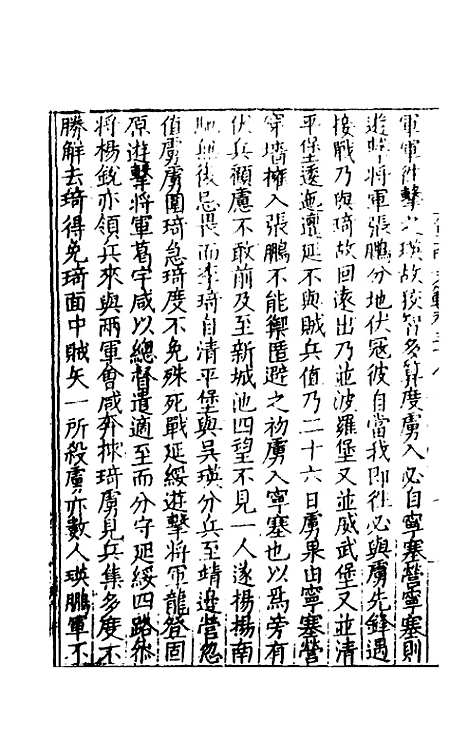 軍軍徃擊之瑛故狡智多算度虜入必自寧塞營寧塞則
遊擊將軍張鵬分地伏冦彼自當我即徃必與虜先鋒遇
接戰乃與琦故回遠出乃並波羅堡又並威武堡又並清
平堡逶迤邅延不與賊兵值乃二十六日虜果由寧塞營
穿墻擁入張鵬不能禦匿避之初虜入寧塞也以爲旁有
伏兵顧慮不敢前及至新城池四望不見一人遂揚揚南
馳無復忌畏而李琦自清平堡與吳瑛分兵至靖邉營忽
值虜虜圍琦急琦度不免殊死戰延綏遊擊將軍龍登固
原遊擊將軍葛宇咸以總督遣適至而分守延綏四路叅
將楊銳亦領兵來與兩軍會咸奔救琦虜見兵集多度不
勝解去琦得免琦面中賊矢一所殺虜亦數人瑛鵬軍不